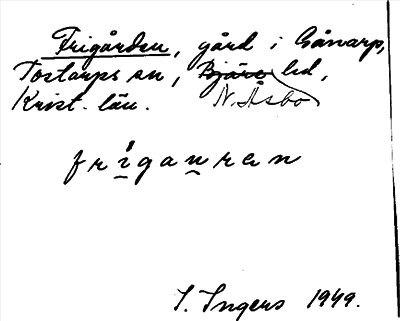 Frigården, gård i Gånarp,
Tostarps sn, Bjäre hd,
Krist. län. N. Åsbo
friganran
I. Ingers 1949.